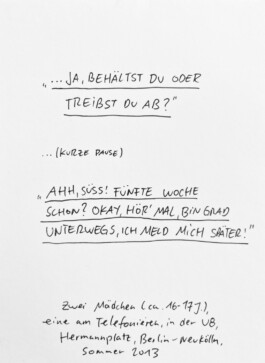 „...JA, BEHÄLTST DU ODER
TREIBST DU AB?“
...(KURZE PAUSE)
„AHH, SÜSS! FÜNFTE WOCHE
SCHON? OKAY, HÖR' MAL, BIN GRAD
UNTERWEGS, ICH MELD MICH SPÄTER!“
Zwei Mädchen (ca. 16-17J.),
eine am Telefonieren, in der U8,
Hermannplatz, Berlin-Neukölln,
Sommer 2013